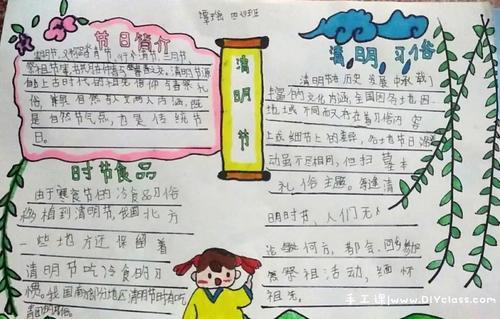 四(2)班
节日简介
清明节,又称踏青节、行清节、三月节、
祭祖节等,
自上古时代的祖先信仰与春祭礼
俗,兼具自然与人文两大内涵,既
是自然节气点,也是传统节
日。
清
明
节
清明习俗
清明节在历史发展中承载了
丰富的文化内涵,全国因各地因
地域不同而又存在着习俗内容
上或细节上的差异,各地节日活
动虽不尽相同,但扫墓
礼俗主题。每逢清
明时节,人们无
论 何方,都会回乡参加
祭祖活动,缅怀
祖先。
时节食品
由于寒食节的冷食习俗
移植到清明节,我国北方
一些地方还保留着
清明节吃冷食的习
惯。我国南部分地区清明节时有吃
手工课|www.DIYclass.com